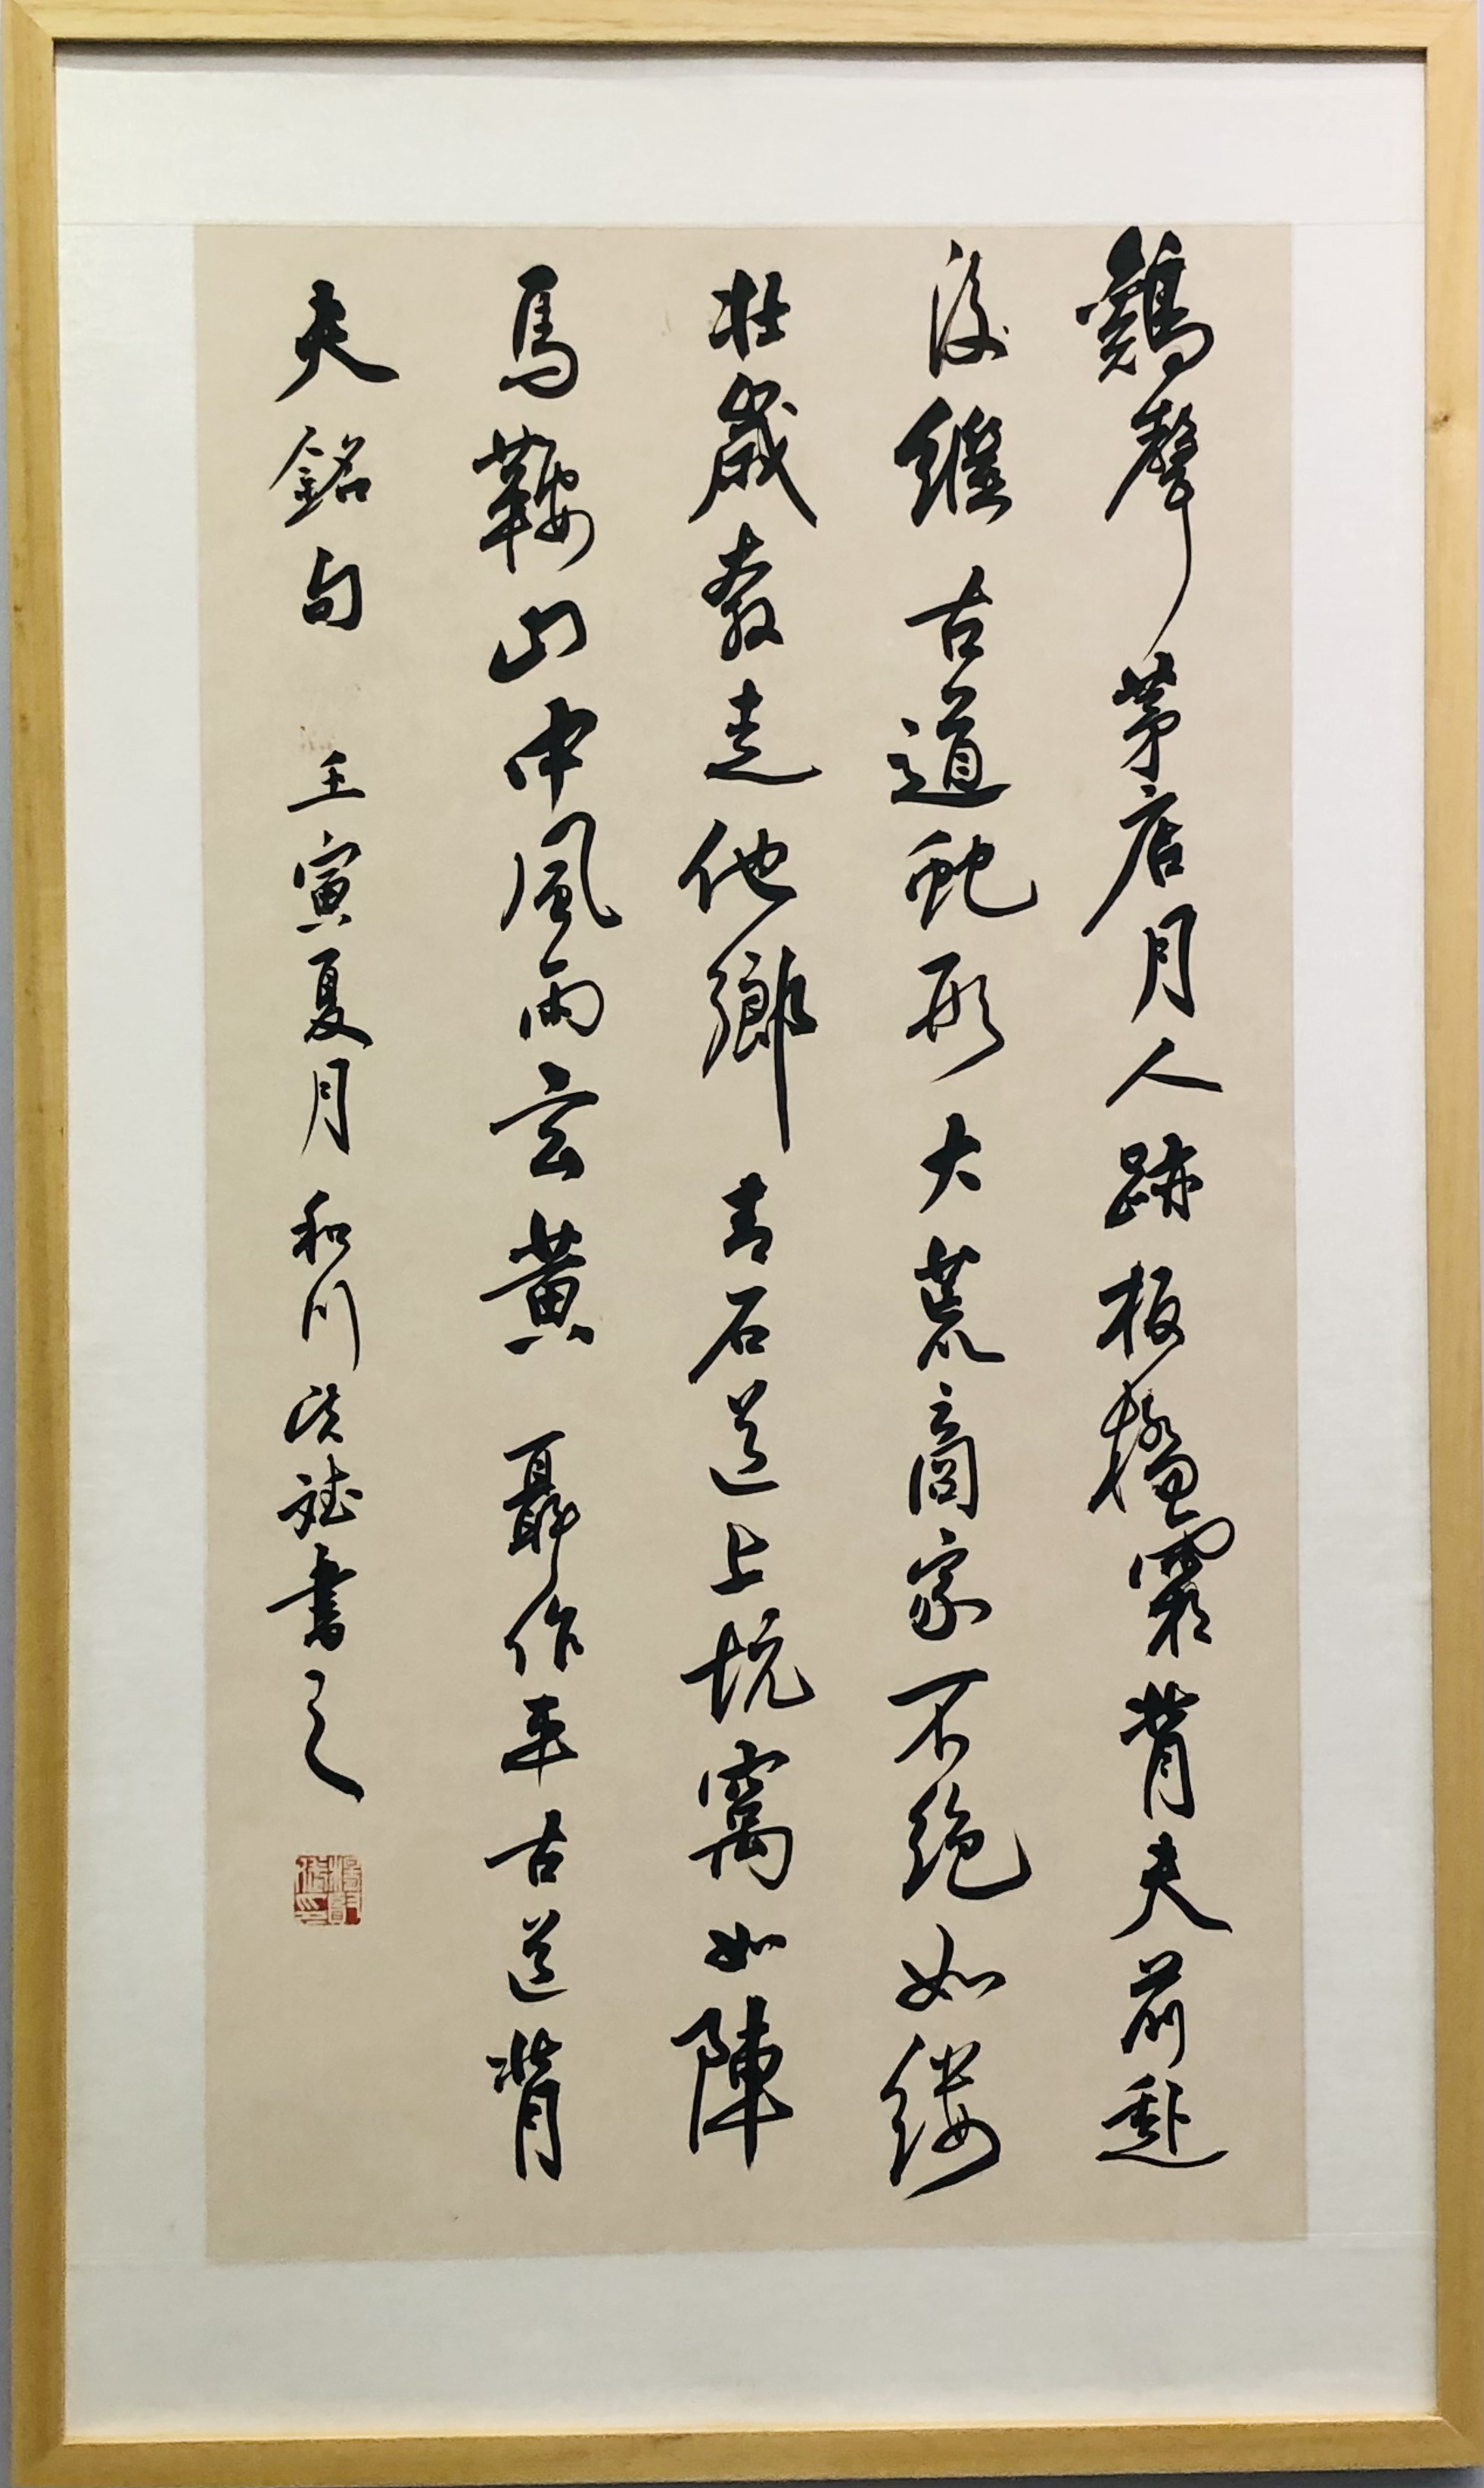 鷄聲茅店月人跡板橋霜背夫前赴
後繼古道蛇形大荒商家不絕如縷
壯歲奔走他鄉青石道上坑窩如陣
馬鞍山中風雨玄黃聶作平古道背
夫銘句 壬寅夏月和川 書之